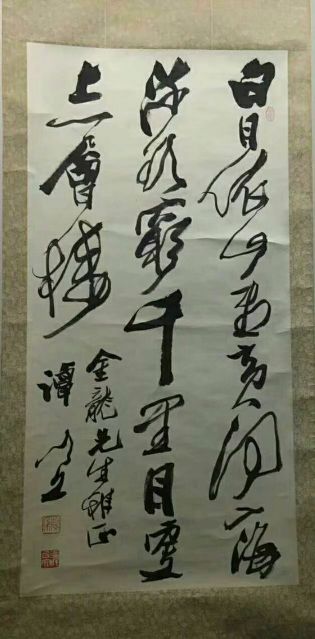 白日依山盡黄河入海
流欲窮千里目更
上一層樓
金龍先生雅正
譚